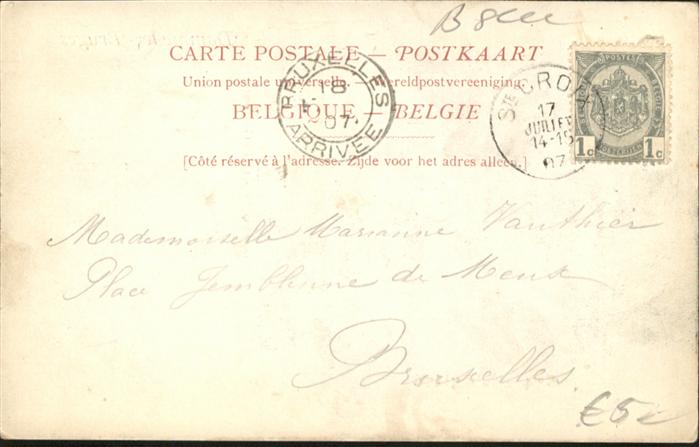 B
CARTE POSTALE — POSTKAART
Union postale universelle. — Wereldpostvereeniging.
BELGIQUE — BELGIE
[Côté réservé à l'adresse. Zijde voor het adres alleen.]
BRUXELLES
18
07
ARRIVÉE
Ste CROIX
17
JUILLET
14-15
07
POSTES
1c 1c
Mademoiselle Marianne Vauthier
Place Jemblinne de Meux
Bruxelles
€5